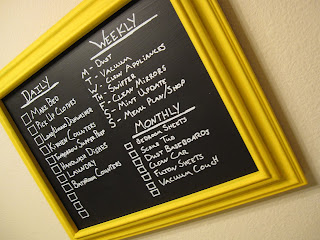 DAILY
MAKE BED
PICK UP CLOTHES
LOAD/UNLOAD DISHWASHER
KITCHEN COUNTERS
TOMORROW SUPPER PREP
HANDWASH DISHES
LAUNDRY
BATHROOM COUNTERS
WEEKLY
M - DUST
T - VACUUM
W - CLEAN APPLIANCES
TH - SWIFFER
F - CLEAN MIRRORS
S - MINT UPDATE
S - MENU PLAN/SHOP
MONTHLY
BEDROOM SHEETS
SCRUB TUB
DUST BASEBOARDS
CLEAN CAR
FUTON SHEETS
VACUUM COUCH